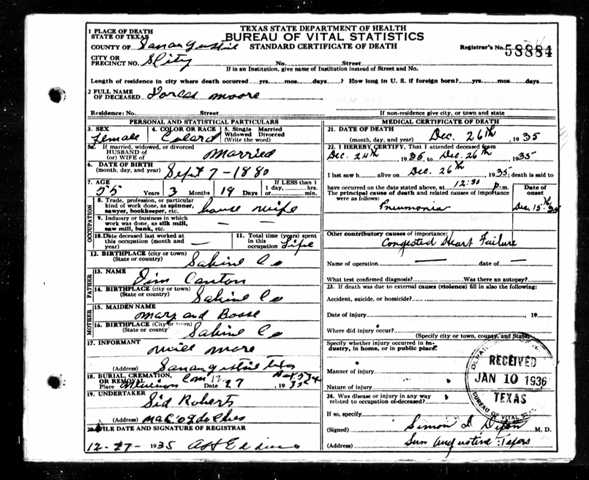 TEXAS STATE DEPARTMENT OF HEALTH
BUREAU OF VITAL STATISTICS
STANDARD CERTIFICATE OF DEATH
1 PLACE OF DEATH
STATE OF TEXAS
COUNTY OF San Augustine
CITY OR
PRECINCT NO. No. Street
Registrar's No. 58884
If in an Institution, give name of Institution instead of Street and No.
Length of residence in city where death occurred yrs. mos. days? How long in U. S. if foreign born? yrs. mos. days
2 FULL NAME
OF DECEASED Dorcas Moore
Residence: No. Street If non-residence give city, or town and state
PERSONAL AND STATISTICAL PARTICULARS
3. SEX 4. COLOR OR RACE 5. Single Married
Widowed Divorced
(Write the word)
Female Colard
5a. If married, widowed, or divorced
HUSBAND OF
(or) WIFE OF Married
6. DATE OF BIRTH
(month, day, and year) Sept 7-1880
7. AGE
55 Years 3 Months 19 Days If LESS than 1
day, hrs.
or min.
OCCUPATION
8. Trade, profession, or particular
kind of work done, as spinner,
sawyer, bookkeeper, etc. house wife
9. Industry or business in which
work was done, as silk mill,
saw mill, bank, etc. —
10. Date deceased last worked at
this occupation (month and
year) —
11. Total time (years) spent
in this
occupation Life
12. BIRTHPLACE (city or town)
(State or country) Sabine Co
FATHER
13. NAME
Jim Canton
14. BIRTHPLACE (city or town)
(State or country) Sabine Co
MOTHER
15. MAIDEN NAME
Mary and
16. BIRTHPLACE (city or town)
(State or country) Sabine Co
17. INFORMANT
(Address) San augustine
18. BURIAL, CREMATION,
OR REMOVAL
Place Date 27 19
19. UNDERTAKER
Sid Roberts
(Address) Nacogdoches
20. FILE DATE AND SIGNATURE OF REGISTRAR
12-27-1935
MEDICAL CERTIFICATE OF DEATH
21. DATE OF DEATH
(month, day, and year) Dec. 26th, 1935
22. I HEREBY CERTIFY, That I attended deceased from
Dec. 24th 1935, to Dec. 26th 1935
I last saw h alive on Dec. 26th, 1935 death is said to
have occurred on the date stated above, at 12:31 p.m.
The principal cause of death and related causes of importance
were as follows:
Date of
onset
Pneumonia Dec. 15th 35
Other contributory causes of importance:
Congested Heart Failure
Name of operation — date of —
What test confirmed diagnosis? Was there an autopsy?
23. If death was due to external causes (violence) fill in also the following:
Accident, suicide, or homicide?
Date of injury 19
Where did injury occur?
(Specify city or town, county, and State)
Specify whether injury occurred in in-
dustry, in home, or in public place.
Manner of injury
Nature of injury
24. Was disease or injury in any way
related to occupation of deceased?
If so, specify
(Signed) Simon M. D.
(Address) San Augustine Texas
RECEIVED
JAN 10 1936
TEXAS
BUREAU OF VITAL